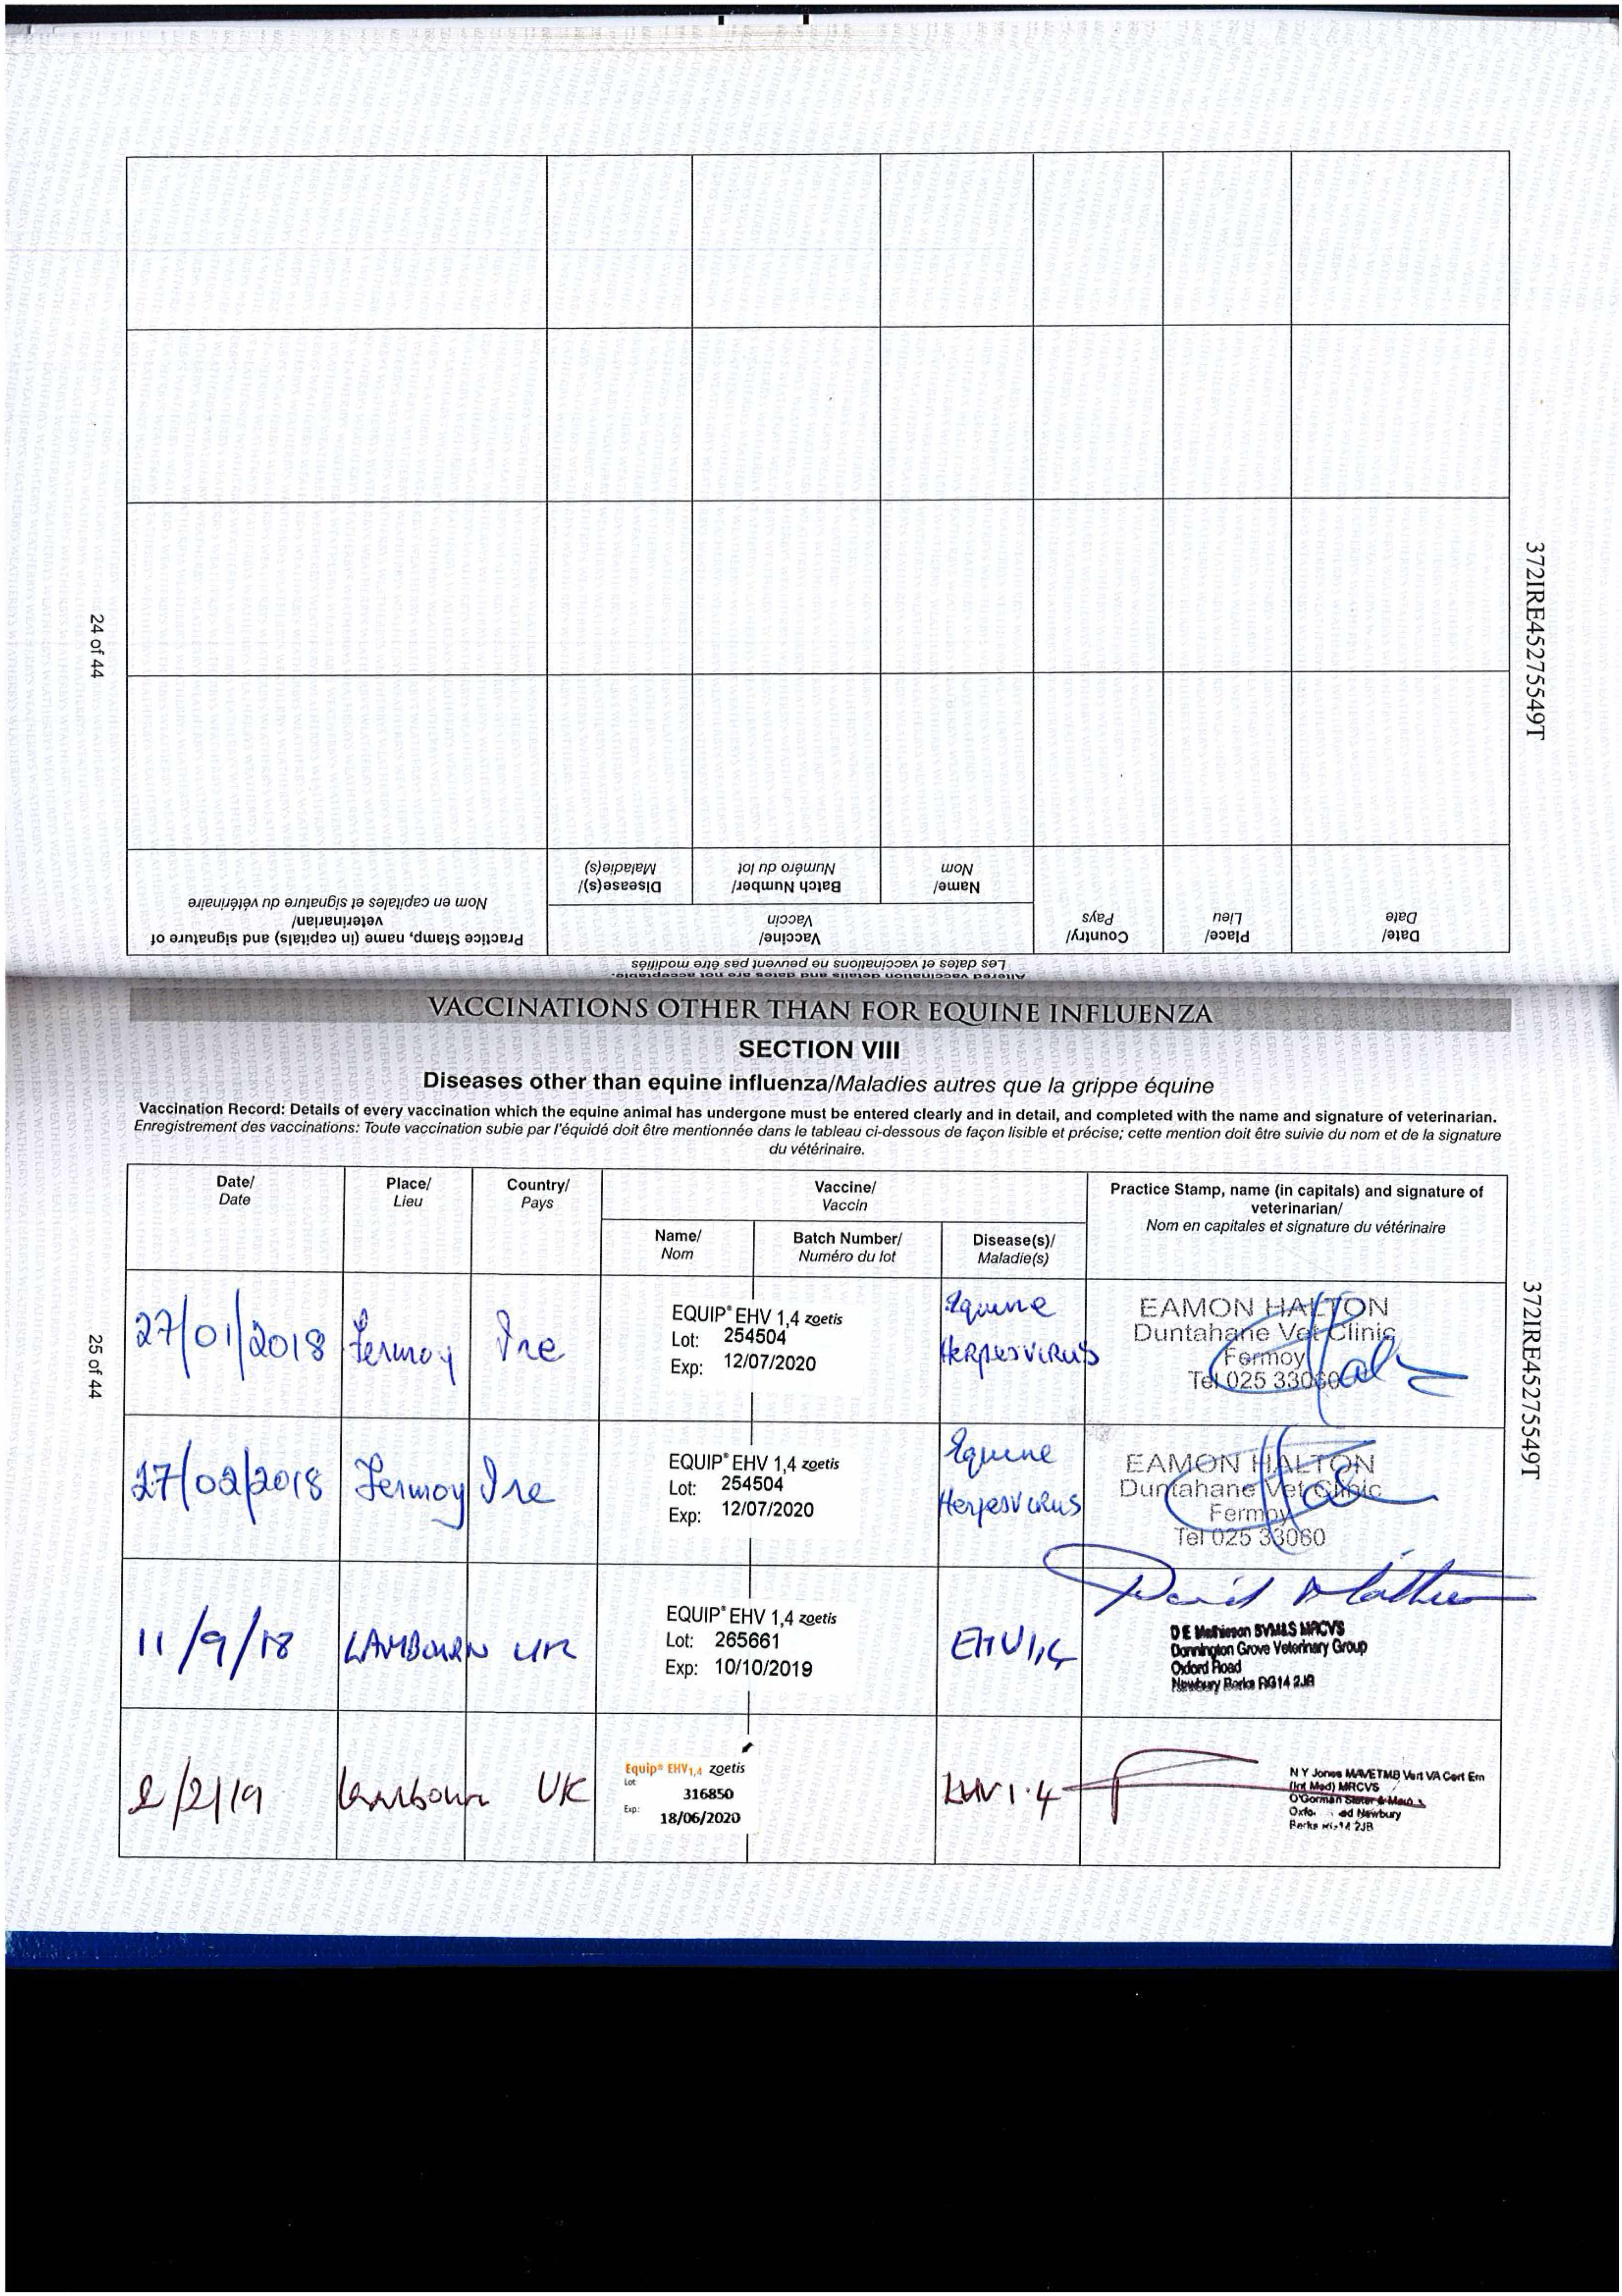 24 of 44
372IRE45275549T
Altered vaccination details and dates are not acceptable.
Les dates et vaccinations ne peuvent pas être modifiées
Date/
Date
Place/
Lieu
Country/
Pays
Vaccine/
Vaccin
Name/
Nom
Batch Number/
Numéro du lot
Disease(s)/
Maladie(s)
Practice Stamp, name (in capitals) and signature of
veterinarian/
Nom en capitales et signature du vétérinaire
VACCINATIONS OTHER THAN FOR EQUINE INFLUENZA
SECTION VIII
Diseases other than equine influenza/Maladies autres que la grippe équine
Vaccination Record: Details of every vaccination which the equine animal has undergone must be entered clearly and in detail, and completed with the name and signature of veterinarian.
Enregistrement des vaccinations: Toute vaccination subie par l'équidé doit être mentionnée dans le tableau ci-dessous de façon lisible et précise; cette mention doit être suivie du nom et de la signature
du vétérinaire.
Date/
Date
Place/
Lieu
Country/
Pays
Vaccine/
Vaccin
Name/
Nom
Batch Number/
Numéro du lot
Disease(s)/
Maladie(s)
Practice Stamp, name (in capitals) and signature of
veterinarian/
Nom en capitales et signature du vétérinaire
27/01/2018
Fermoy
Ire
EQUIP® EHV 1,4 zoetis
Lot: 254504
Exp: 12/07/2020
Equine
HERPESVIRUS
EAMON HALTON
Duntahane Vet Clinic
Fermoy
Tel 025 33060
27/02/2018
Fermoy
Ire
EQUIP® EHV 1,4 zoetis
Lot: 254504
Exp: 12/07/2020
Equine
HerpesVirus
EAMON HALTON
Duntahane Vet Clinic
Fermoy
Tel 025 33060
11/9/18
LAMBOURN
UK
EQUIP® EHV 1,4 zoetis
Lot: 265661
Exp: 10/10/2019
EHV1,4
David Mathieson
D E Mathieson BVM&S MRCVS
Donnington Grove Veterinary Group
Oxford Road
Newbury Berks RG14 2JB
2/2/19
Lambourn
UK
Equip® EHV1,4 zoetis
Lot
316850
Exp:
18/06/2020
EHV1.4
N Y Jones MAVETMB Vert VA Cert Em
(Int Med) MRCVS
O'Gorman Slater &
Newbury
Berks 2JB
25 of 44
372IRE45275549T